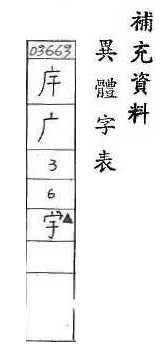 補充資料
異體字表
03663
㡰
广
3
6
宇▲